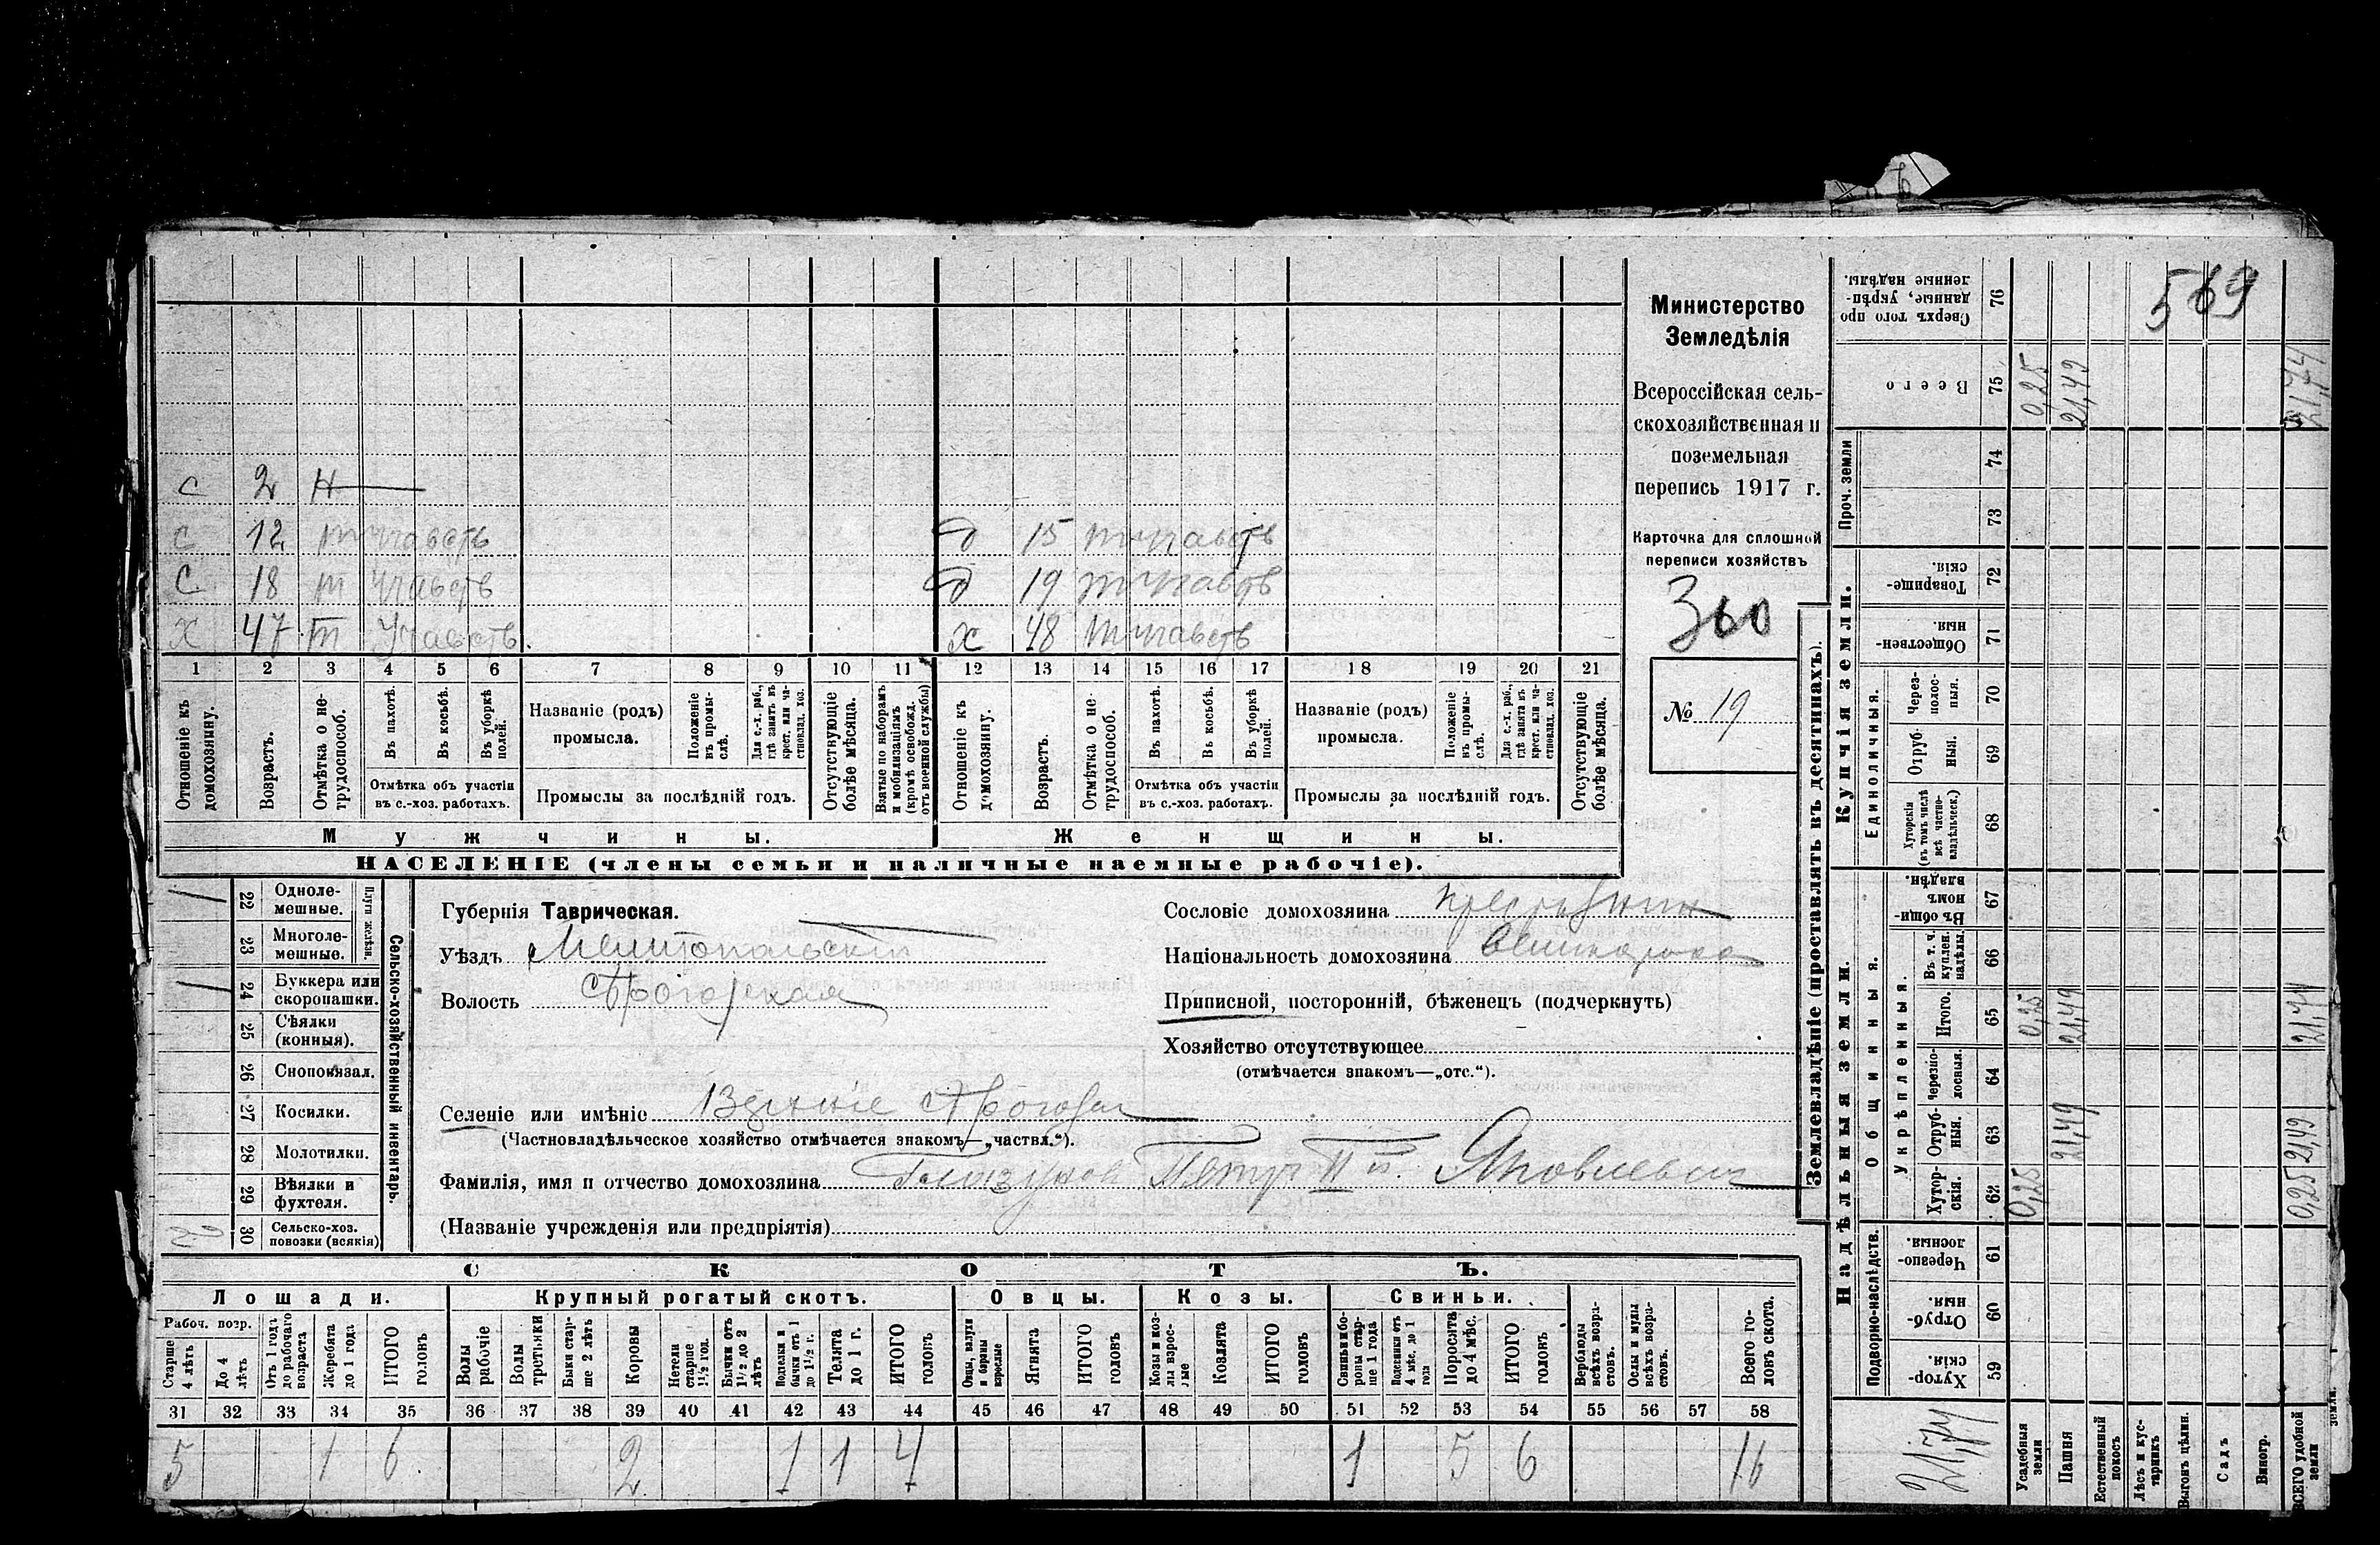 569
Министерство
Земледѣлія
Всероссійская сель-
скохозяйственная и
поземельная
перепись 1917 г.
Карточка для сплошной
переписи хозяйствъ
360
№ 19
с 2 н
с 12 т участв д 15 т участв
с 18 т участв д 19 т участв
х 47 т участв. х 48 т участв
1 2 3 4 5 6 7 8 9 10 11 12 13 14 15 16 17 18 19 20 21
Отношеніе къ домохозяину.
Возрастъ.
Отмѣтка о не-трудоспособ.
Въ пахотѣ.
Въ косьбѣ.
Въ уборкѣ полей.
Отмѣтка объ участіи въ с.-хоз. работахъ.
Названіе (родъ) промысла.
Положеніе въ промы-слѣ.
Для с.-х. раб., гдѣ занятъ въ крест. или ча-стновлад. хоз.
Промыслы за послѣдній годъ.
Отсутствующіе болѣе мѣсяца.
Взятые по наборамъ и мобилизаціямъ (кромѣ освобожд. отъ военной службы)
Отношеніе къ домохозяину.
Возрастъ.
Отмѣтка о не-трудоспособ.
Въ пахотѣ.
Въ косьбѣ.
Въ уборкѣ полей.
Отмѣтка объ участіи въ с.-хоз. работахъ.
Названіе (родъ) промысла.
Положеніе въ промы-слѣ.
Для с.-х. раб., гдѣ занята въ крест. или ча-стновлад. хоз.
Промыслы за послѣдній годъ.
Отсутствующіе болѣе мѣсяца.
Мужчины. Женщины.
НАСЕЛЕНІЕ (члены семьи и наличные наемные рабочіе).
Сельско-хозяйственный инвентарь.
Плуги желѣзн.
1 22 Одноле-мешные.
23 Многоле-мешные.
1 24 Буккера или скоропашки.
25 Сѣялки (конныя).
26 Сноповязал.
27 Косилки.
28 Молотилки.
29 Вѣялки и фухтеля.
2 30 Сельско-хоз. повозки (всякія)
Губернія Таврическая.
Уѣздъ Мелитопольскій
Волость
Сословіе домохозяина крестьянин
Національность домохозяина
Приписной, посторонній, бѣженецъ (подчеркнуть)
Хозяйство отсутствующее
(отмѣчается знакомъ—„отс.“).
Селеніе или имѣніе
(Частновладѣльческое хозяйство отмѣчается знакомъ—„частвл.“).
Фамилія, имя и отчество домохозяина Глазунов Петр II й. Яковлевич
(Названіе учрежденія или предпріятія)
СКОТЪ.
Лошади. Крупный рогатый скотъ. Овцы. Козы. Свиньи.
Рабоч. возр.
Старше 4 лѣтъ
До 4 лѣтъ
Отъ 1 года до рабочаго возраста
Жеребята до 1 года
ИТОГО головъ
Волы рабочіе
Волы третьяки
Быки стар-ше 2 лѣтъ
Коровы
Нетели старше 1½ год.
Бычки отъ 1½ до 2 лѣтъ
Подтелки и бычки отъ 1 до 1½ г.
Телята до 1 г.
ИТОГО головъ
Овцы, валухи и бараны взрослые
Ягнята
ИТОГО головъ
Козы и коз-лы взрос-лые
Козлята
ИТОГО головъ
Свиньи и бо-ровы стар-ше 1 года
Подсвинки отъ 4 мѣс. до 1 года
Поросята до 4 мѣс.
ИТОГО головъ
Верблюды всѣхъ возра-стовъ.
Ослы и мулы всѣхъ возра-стовъ.
Всего го-ловъ скота.
31 32 33 34 35 36 37 38 39 40 41 42 43 44 45 46 47 48 49 50 51 52 53 54 55 56 57 58
5 1 6 2 1 1 4 1 5 6 16
Землевладѣніе (проставлять въ десятинахъ).
Купчія земли.
Проч. земли
Сверхъ того про данные, укрѣп-ленные надѣлы. 76
Всего 75 0,25 21,49 21,74
74
73
Товарище-скія. 72
Обществен-ныя 71
Единоличныя.
Через-полос-ныя. 70
Отруб-ныя. 69
Хуторскія (въ томъ числѣ всѣ частно-владѣльческ.) 68
Надѣльныя земли.
Общинныя.
Въ общи-номъ владѣн. 67
Укрѣпленныя.
Въ т. ч. куплен. надѣлы. 66
Итого. 65 0,25 21,49 21,74
Черезпо-лосныя. 64
Отруб-ныя. 63 21,49 21,49
Хутор-скія. 62 0,25 0,25
Подворно-наслѣдств.
Черезпо-лосныя. 61
Отруб-ныя. 60
Хутор-скія. 59
21,74
Усадебныя земли
Пашня
Естественный покосъ
Лѣсъ и кус-тарникъ
Выгонъ цѣлин.
Садъ
Виногр.
ВСЕГО удобной земли
земли.